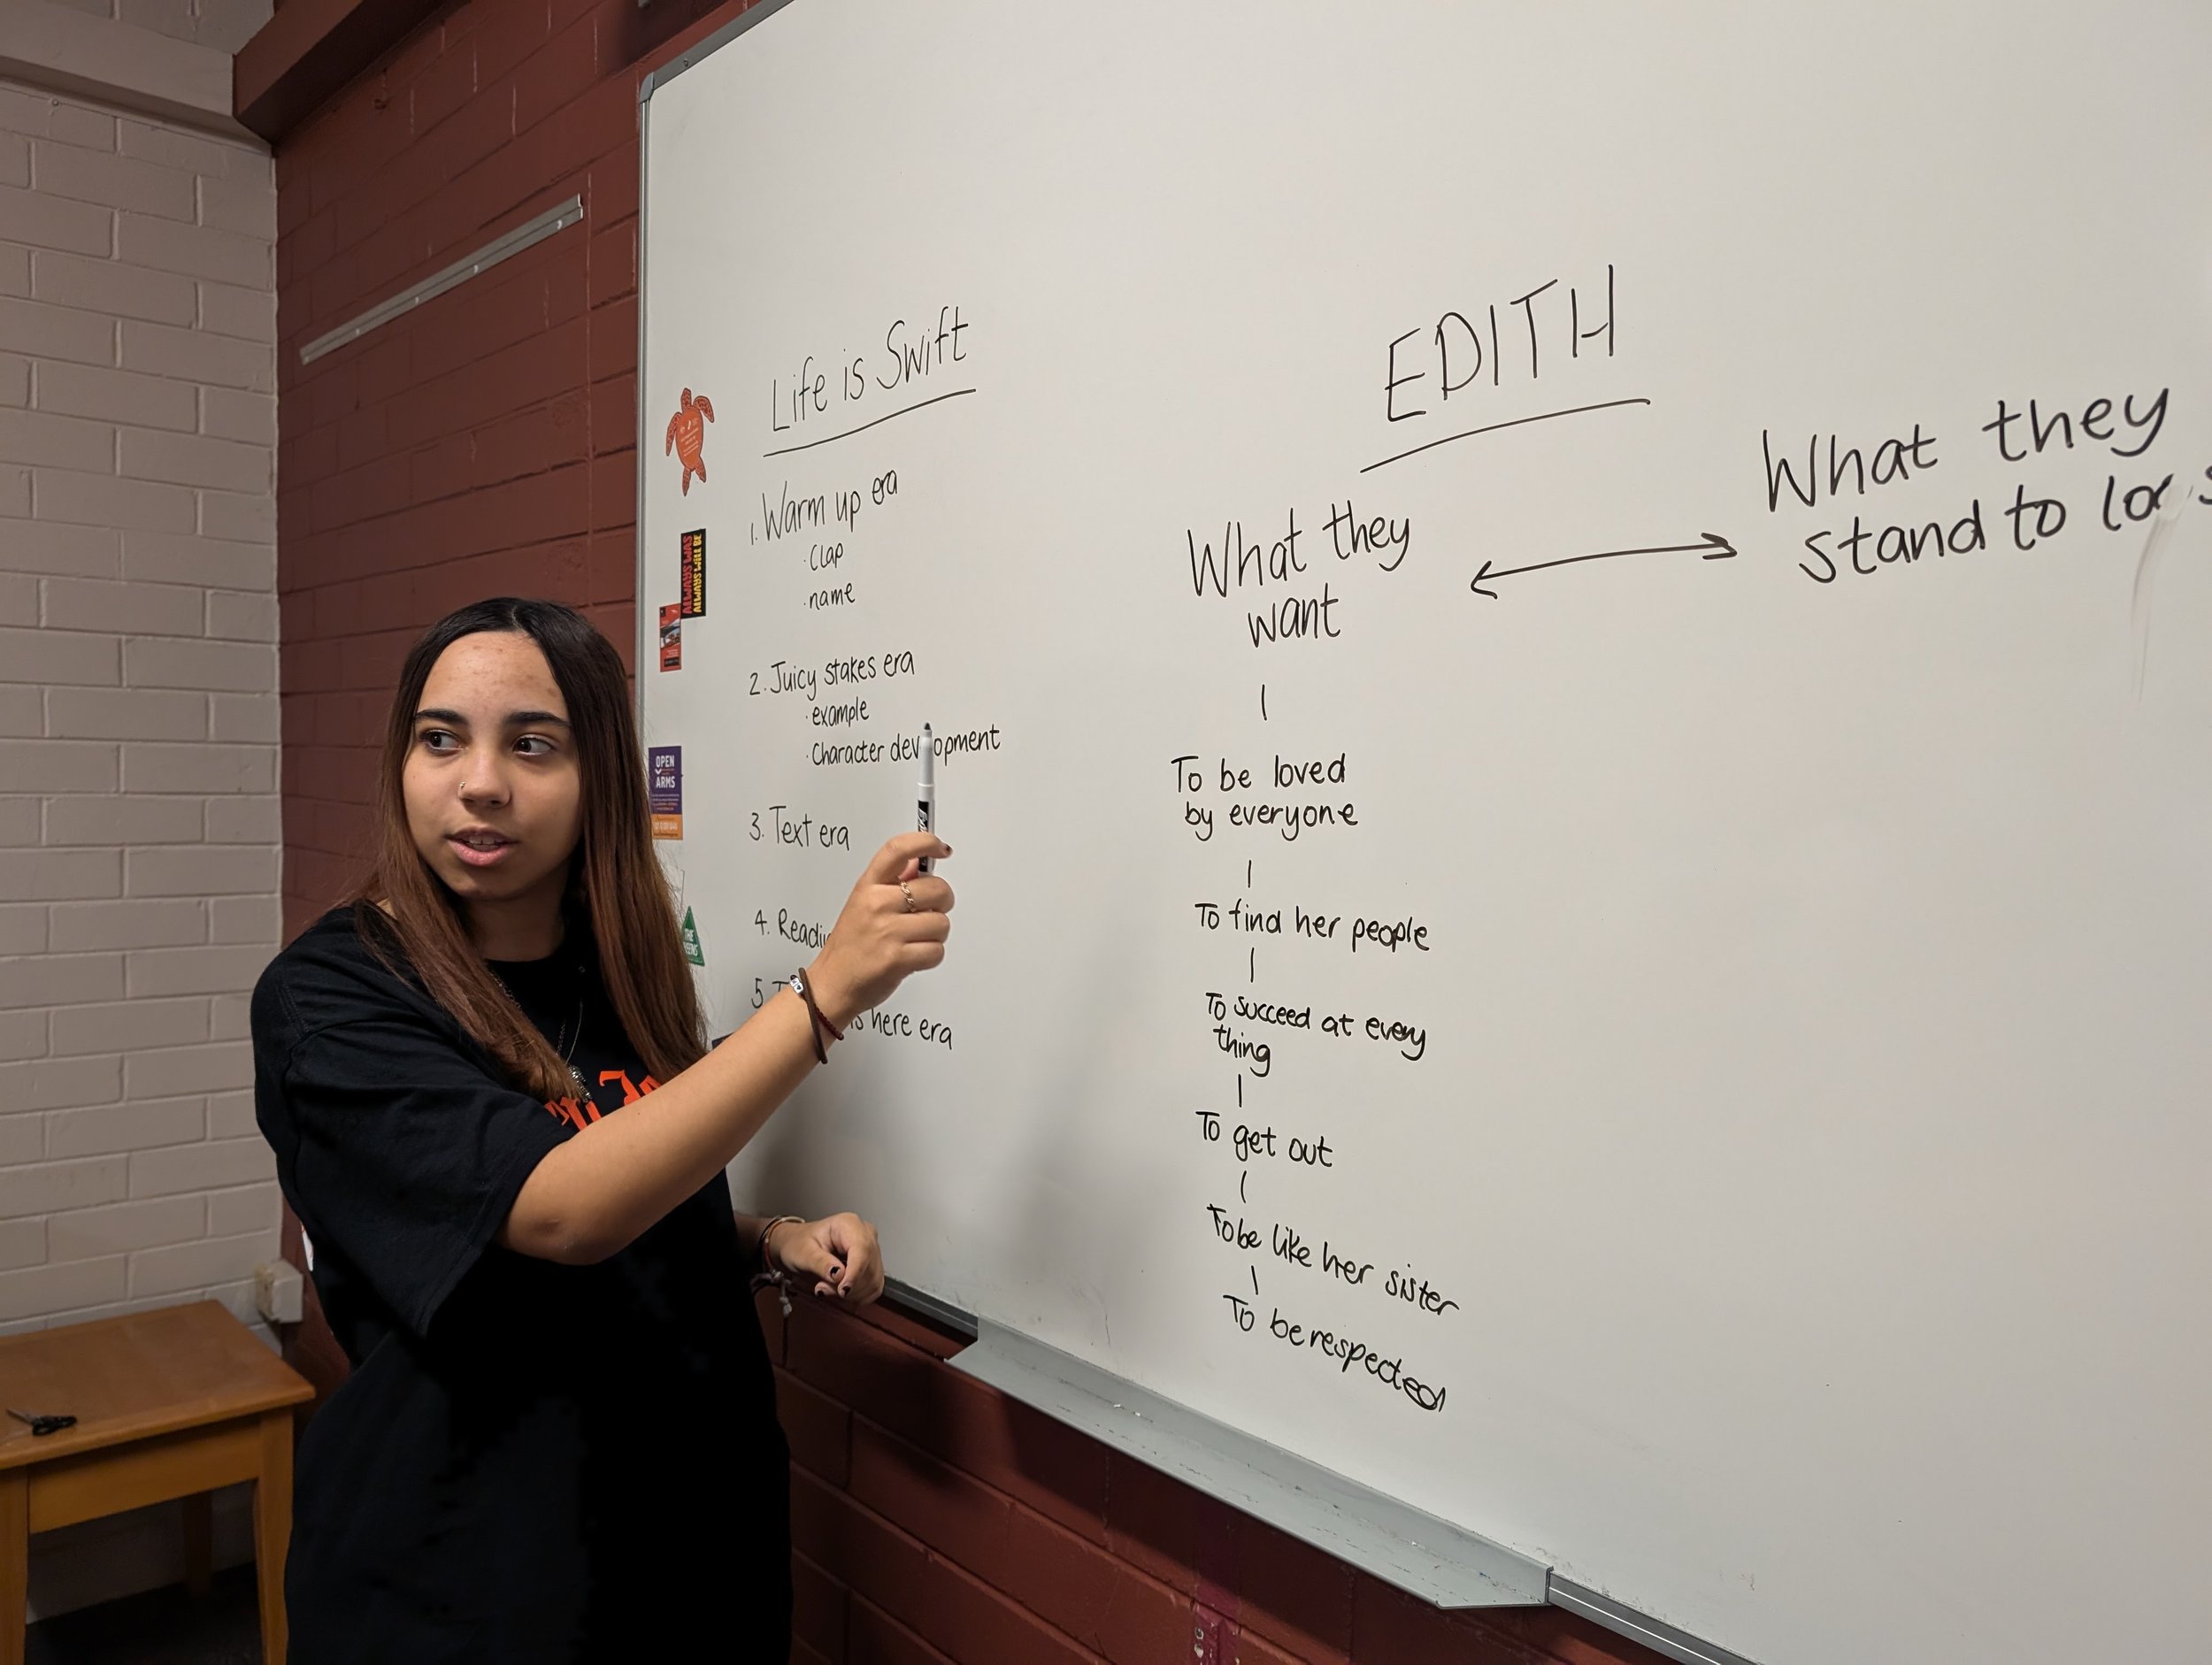 Life is Swift
1. Warm up era
· Clap
· name
2. Juicy stakes era
· example
· Character
3. Text era
4.
5.
here era
EDITH
What they
want
To be loved
by everyone
To find her people
To succeed at every
thing
To get out
To be like her sister
To be respected
What they
stand to
ALWAYS WAS
ALWAYS WILL BE
OPEN
ARMS
THE